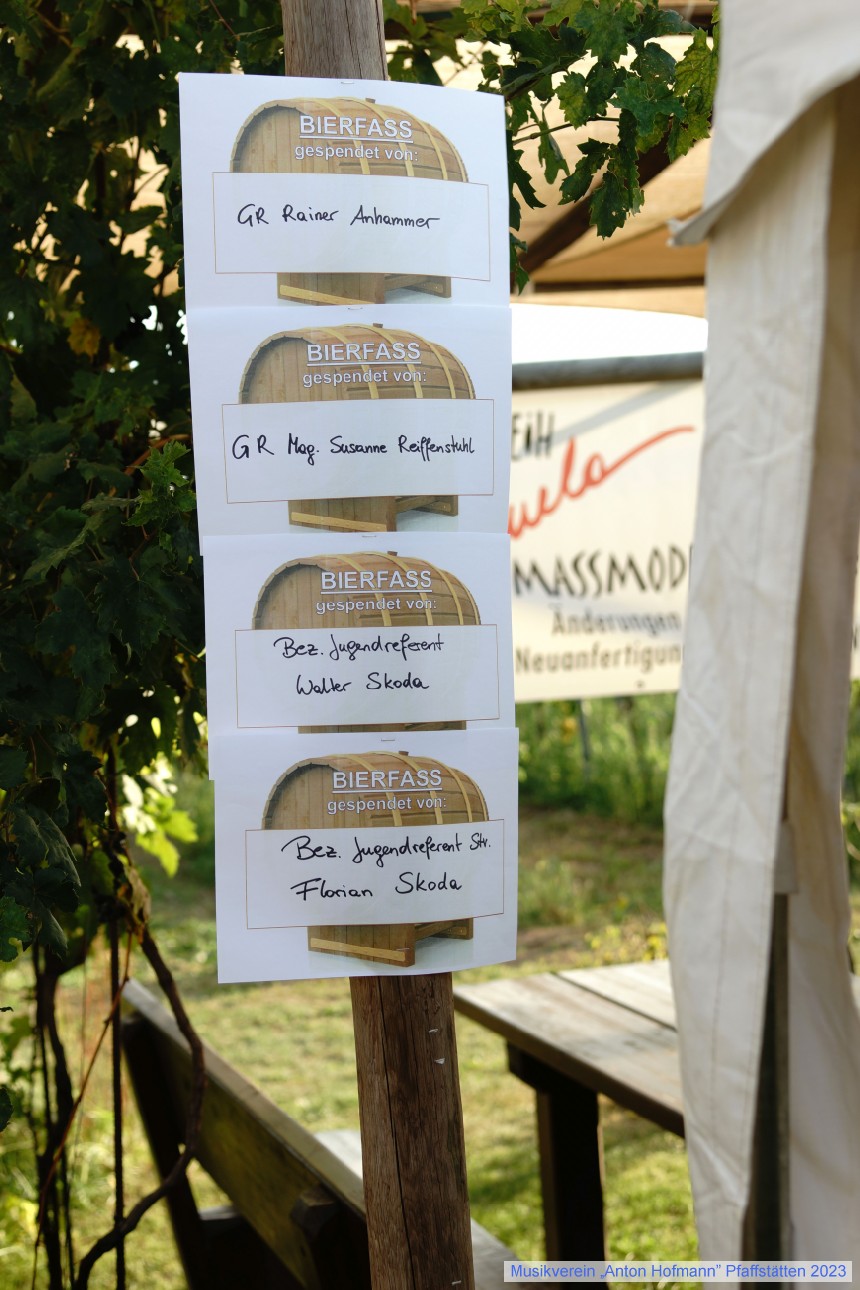 BIERFASS
gespendet von:
GR Rainer Anhammer
BIERFASS
gespendet von:
GR Mag. Susanne Reiffenstuhl
BIERFASS
gespendet von:
Bez. Jugendreferent
Walter Skoda
BIERFASS
gespendet von:
Bez. Jugendreferent Stv.
Florian Skoda
EIH
uela
MASSMOD
Änderungen
Neuanfertigun
Musikverein „Anton Hofmann” Pfaffstätten 2023